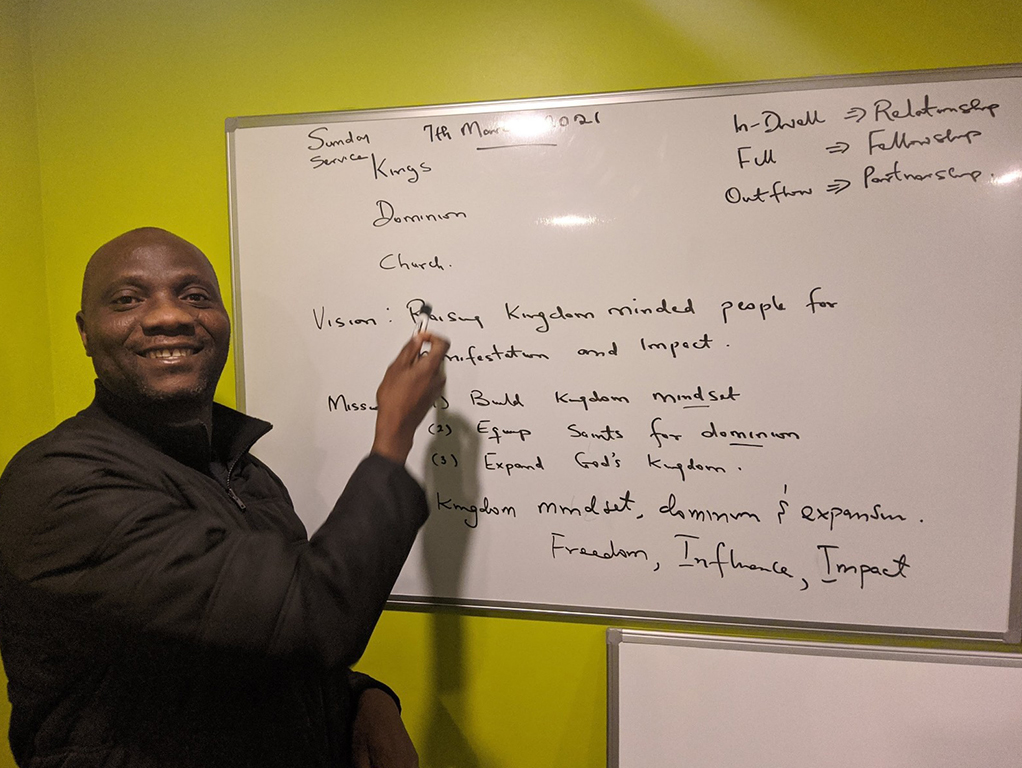 Sunday 7th 2021
Service
Kings
Dominion
Church.
In-Dwell ⇒ Relationship
Fill ⇒ Fellowship
Outflow ⇒ Partnership.
Vision: Raising Kingdom minded people for
and Impact.
Build Kingdom mindset
(2) Equip Saints for dominion
(3) Expand God's Kingdom.
Kingdom mindset, dominion & expansion.
Freedom, Influence, Impact